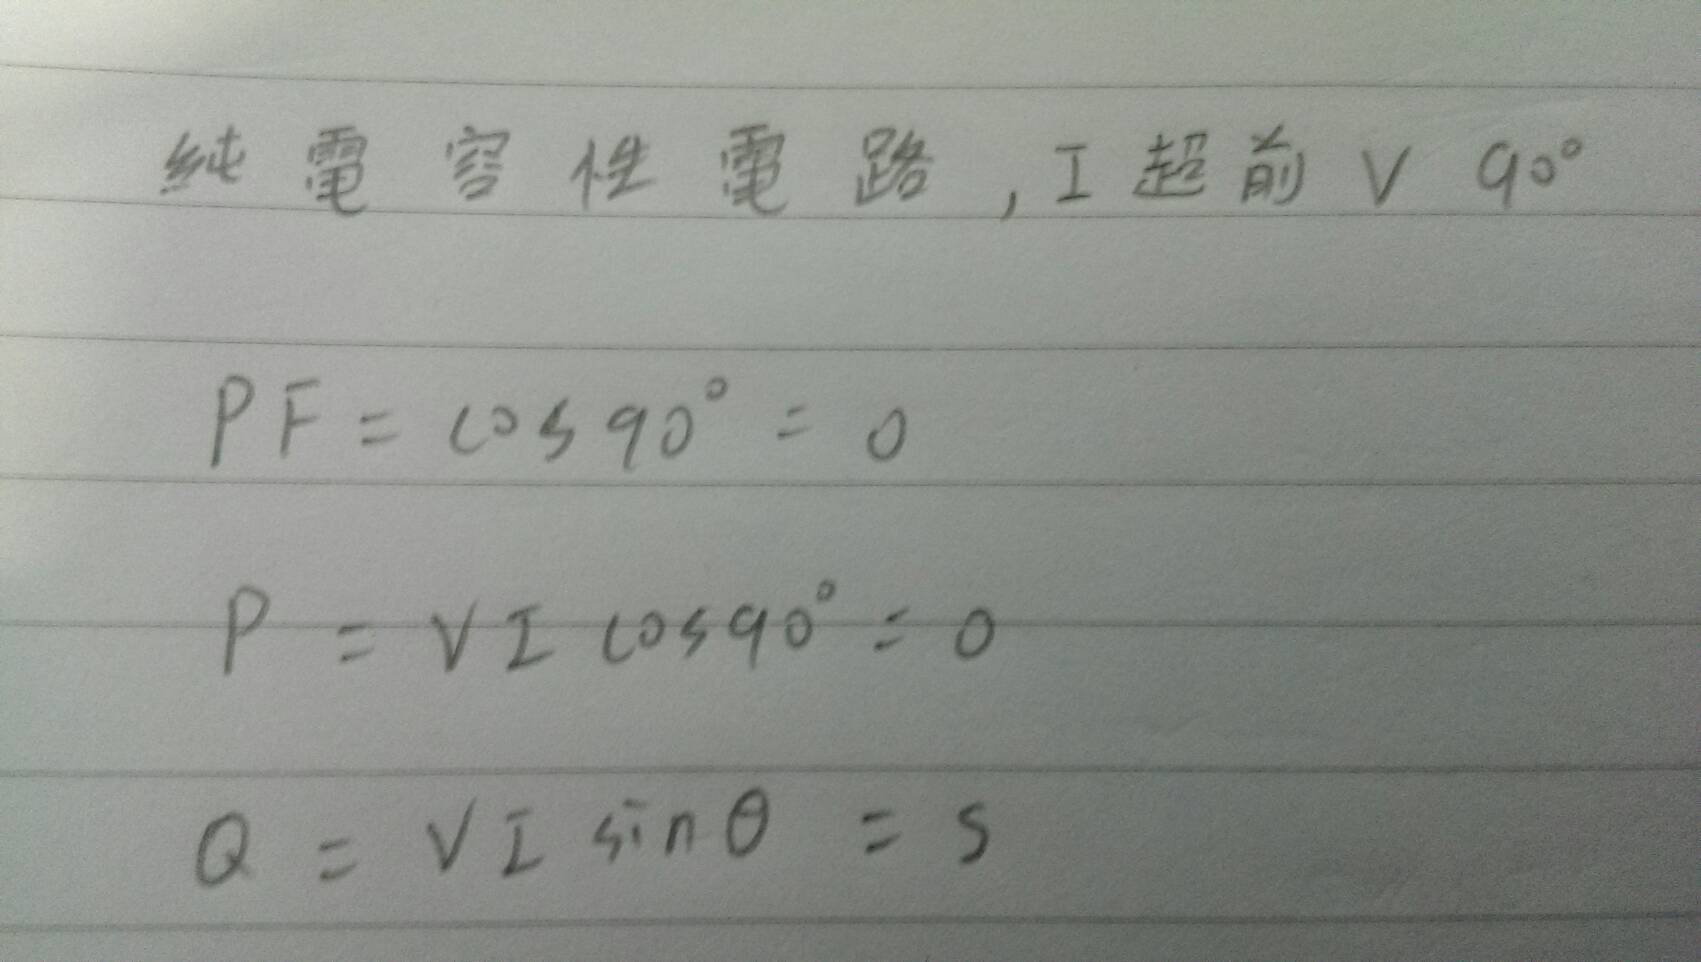 純電容性電路,I超前V 90°
PF = cos90° = 0
P = VI cos90° = 0
Q = VI sinθ = S